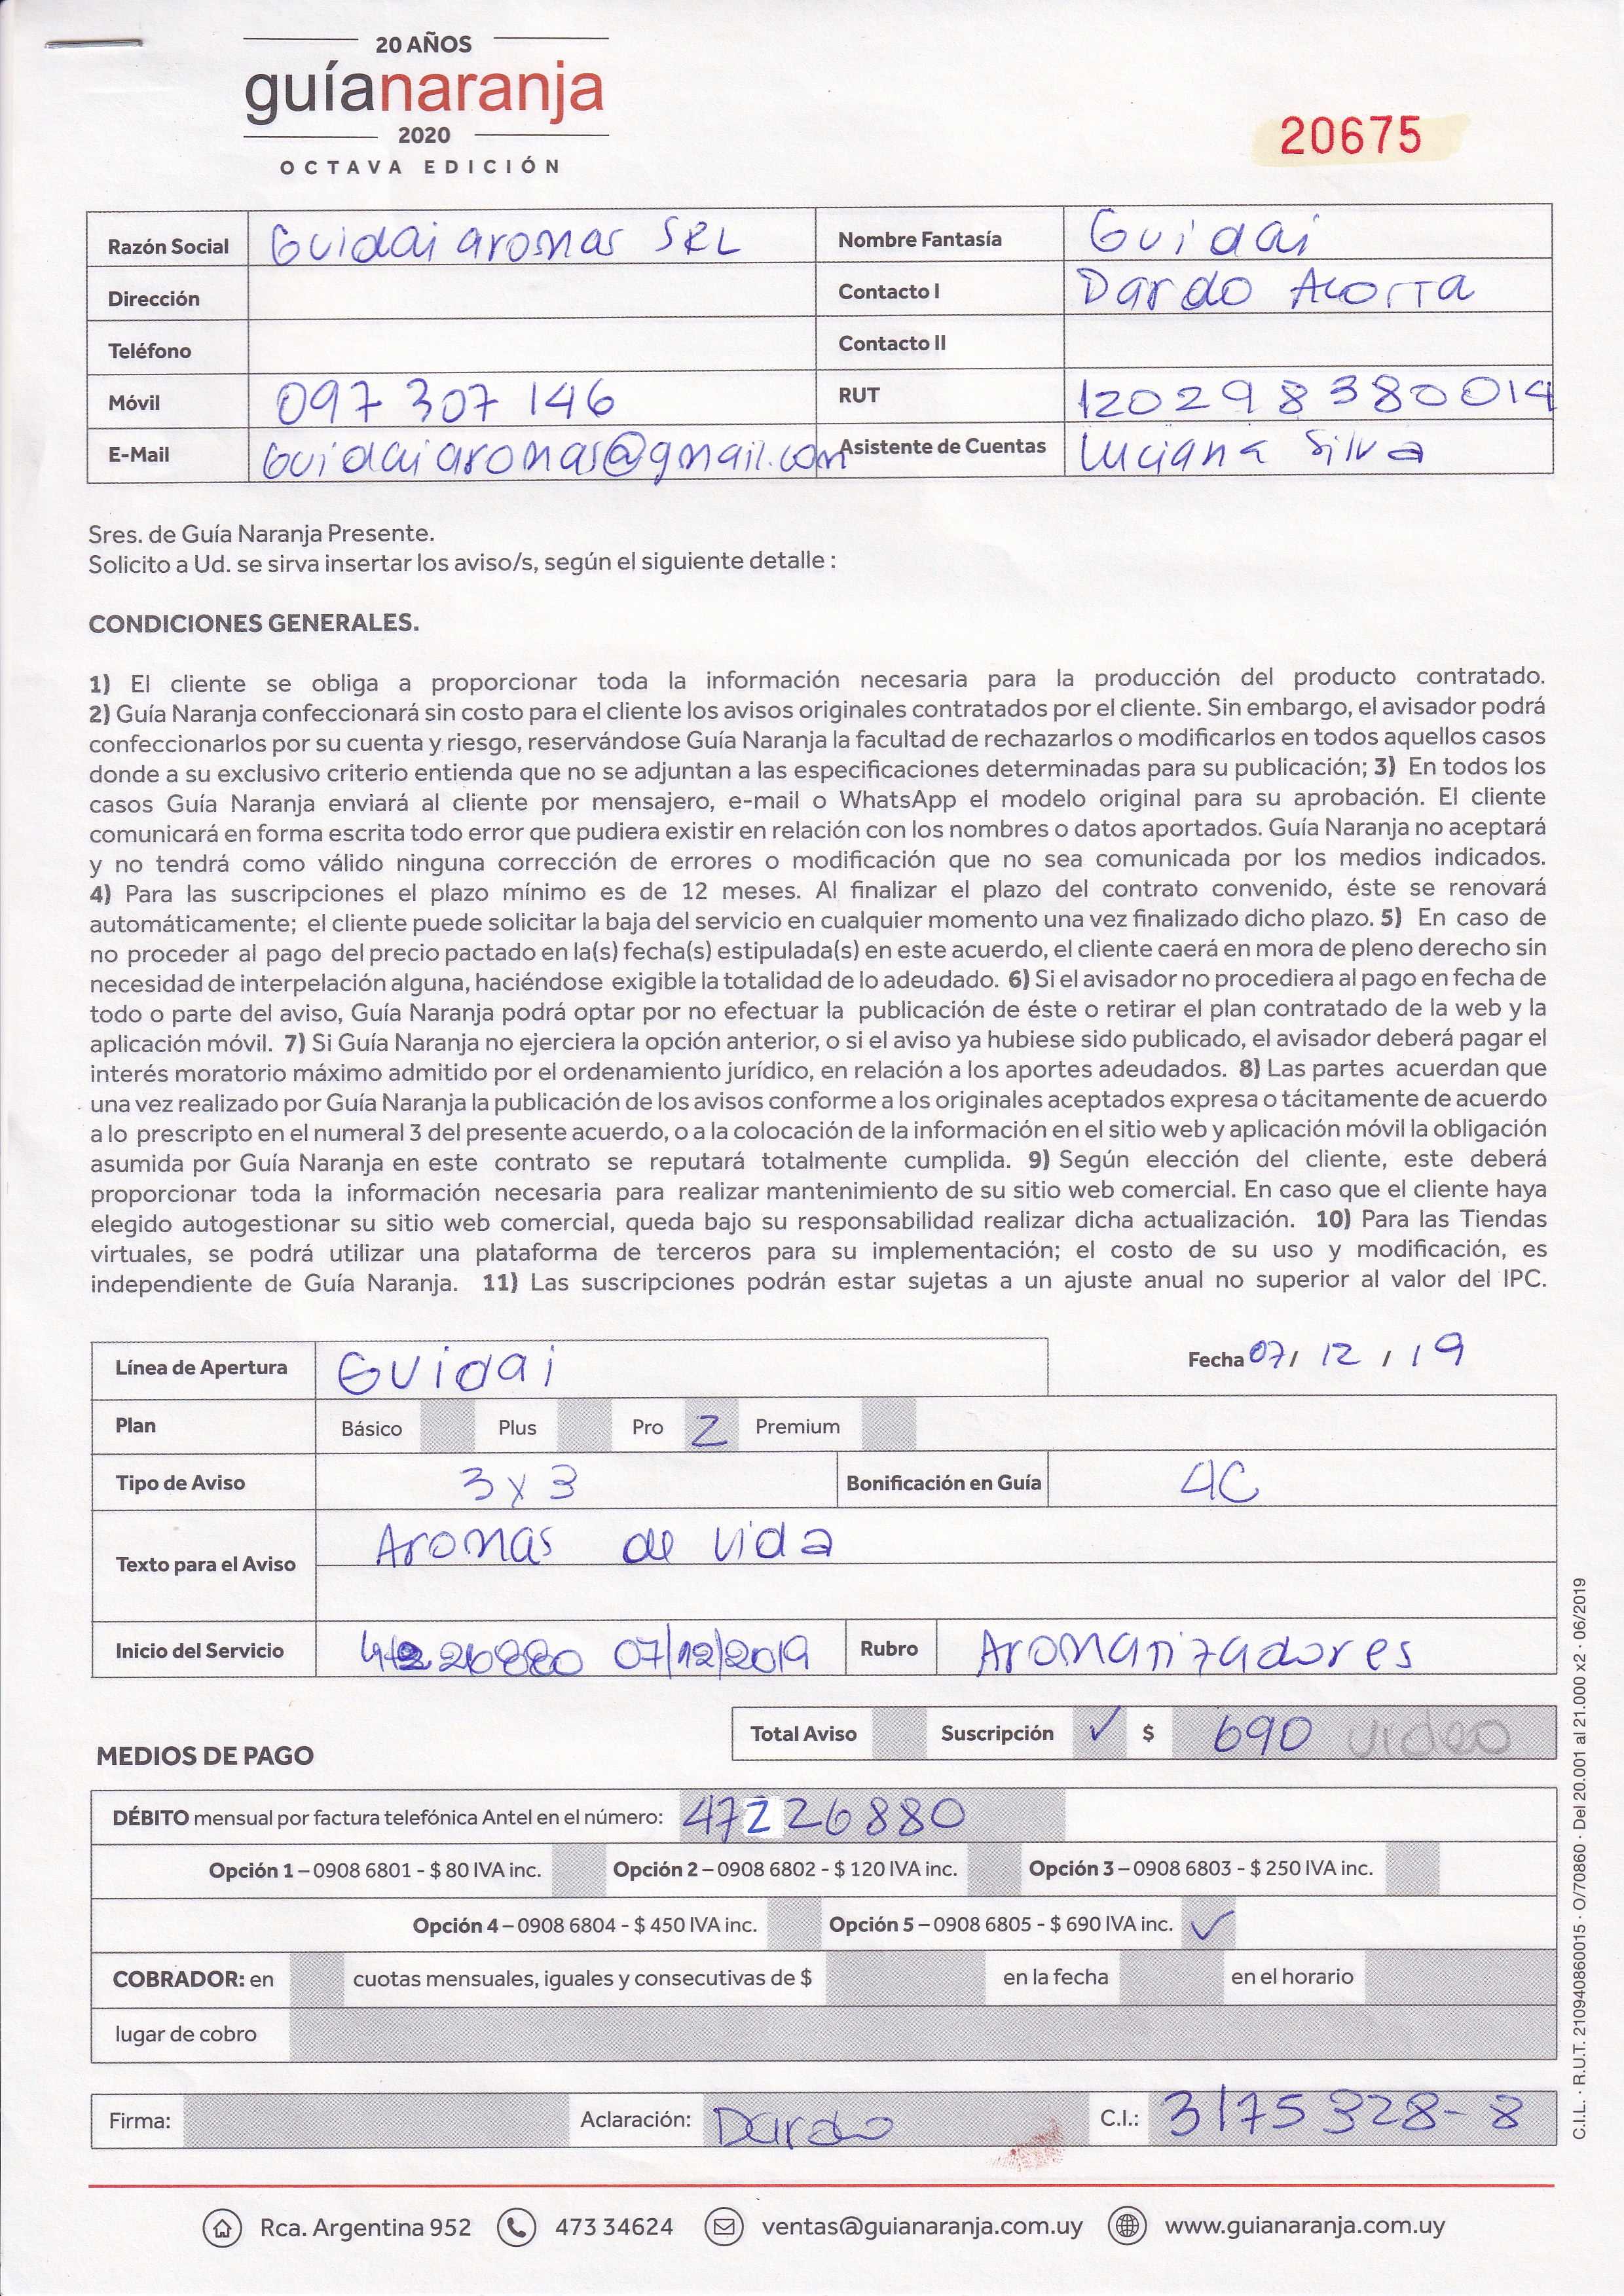 20 AÑOS
guíanaranja
2020
OCTAVA EDICIÓN
20675
Razón Social Guidai aromas SRL Nombre Fantasía Guidai
Dirección Contacto I Dardo Acosta
Teléfono Contacto II
Móvil 097 307 146 RUT 120298380014
E-Mail Guidaiaromas@gmail.com Asistente de Cuentas Luciana Silva
Sres. de Guía Naranja Presente.
Solicito a Ud. se sirva insertar los aviso/s, según el siguiente detalle :
CONDICIONES GENERALES.
1) El cliente se obliga a proporcionar toda la información necesaria para la producción del producto contratado.
2) Guía Naranja confeccionará sin costo para el cliente los avisos originales contratados por el cliente. Sin embargo, el avisador podrá
confeccionarlos por su cuenta y riesgo, reservándose Guía Naranja la facultad de rechazarlos o modificarlos en todos aquellos casos
donde a su exclusivo criterio entienda que no se adjuntan a las especificaciones determinadas para su publicación; 3) En todos los
casos Guía Naranja enviará al cliente por mensajero, e-mail o WhatsApp el modelo original para su aprobación. El cliente
comunicará en forma escrita todo error que pudiera existir en relación con los nombres o datos aportados. Guía Naranja no aceptará
y no tendrá como válido ninguna corrección de errores o modificación que no sea comunicada por los medios indicados.
4) Para las suscripciones el plazo mínimo es de 12 meses. Al finalizar el plazo del contrato convenido, éste se renovará
automáticamente; el cliente puede solicitar la baja del servicio en cualquier momento una vez finalizado dicho plazo. 5) En caso de
no proceder al pago del precio pactado en la(s) fecha(s) estipulada(s) en este acuerdo, el cliente caerá en mora de pleno derecho sin
necesidad de interpelación alguna, haciéndose exigible la totalidad de lo adeudado. 6) Si el avisador no procediera al pago en fecha de
todo o parte del aviso, Guía Naranja podrá optar por no efectuar la publicación de éste o retirar el plan contratado de la web y la
aplicación móvil. 7) Si Guía Naranja no ejerciera la opción anterior, o si el aviso ya hubiese sido publicado, el avisador deberá pagar el
interés moratorio máximo admitido por el ordenamiento jurídico, en relación a los aportes adeudados. 8) Las partes acuerdan que
una vez realizado por Guía Naranja la publicación de los avisos conforme a los originales aceptados expresa o tácitamente de acuerdo
a lo prescripto en el numeral 3 del presente acuerdo, o a la colocación de la información en el sitio web y aplicación móvil la obligación
asumida por Guía Naranja en este contrato se reputará totalmente cumplida. 9) Según elección del cliente, este deberá
proporcionar toda la información necesaria para realizar mantenimiento de su sitio web comercial. En caso que el cliente haya
elegido autogestionar su sitio web comercial, queda bajo su responsabilidad realizar dicha actualización. 10) Para las Tiendas
virtuales, se podrá utilizar una plataforma de terceros para su implementación; el costo de su uso y modificación, es
independiente de Guía Naranja. 11) Las suscripciones podrán estar sujetas a un ajuste anual no superior al valor del IPC.
Línea de Apertura Guidai Fecha 07 / 12 / 19
Plan Básico Plus Pro 2 Premium
Tipo de Aviso 3 x 3 Bonificación en Guía 4C
Texto para el Aviso Aromas de vida
Inicio del Servicio 07/12/2019 Rubro Aromatizadores
Total Aviso Suscripción ✓ $ 690 video
MEDIOS DE PAGO
DÉBITO mensual por factura telefónica Antel en el número: 47226880
Opción 1 – 0908 6801 - $ 80 IVA inc. Opción 2 – 0908 6802 - $ 120 IVA inc. Opción 3 – 0908 6803 - $ 250 IVA inc.
Opción 4 – 0908 6804 - $ 450 IVA inc. Opción 5 – 0908 6805 - $ 690 IVA inc. ✓
COBRADOR: en cuotas mensuales, iguales y consecutivas de $ en la fecha en el horario
lugar de cobro
Firma: Aclaración: Dardo C.I.: 3175328-8
Rca. Argentina 952 473 34624 ventas@guianaranja.com.uy www.guianaranja.com.uy
C.I.L. · R.U.T. 210940860015 · O/70860 · Del 20.001 al 21.000 x2 · 06/2019